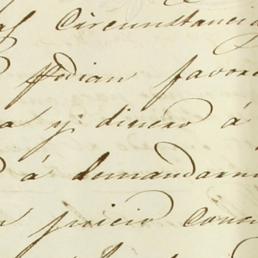 Circunstanci
Podian favor
a y dinero á
á demandarn
juicio Con